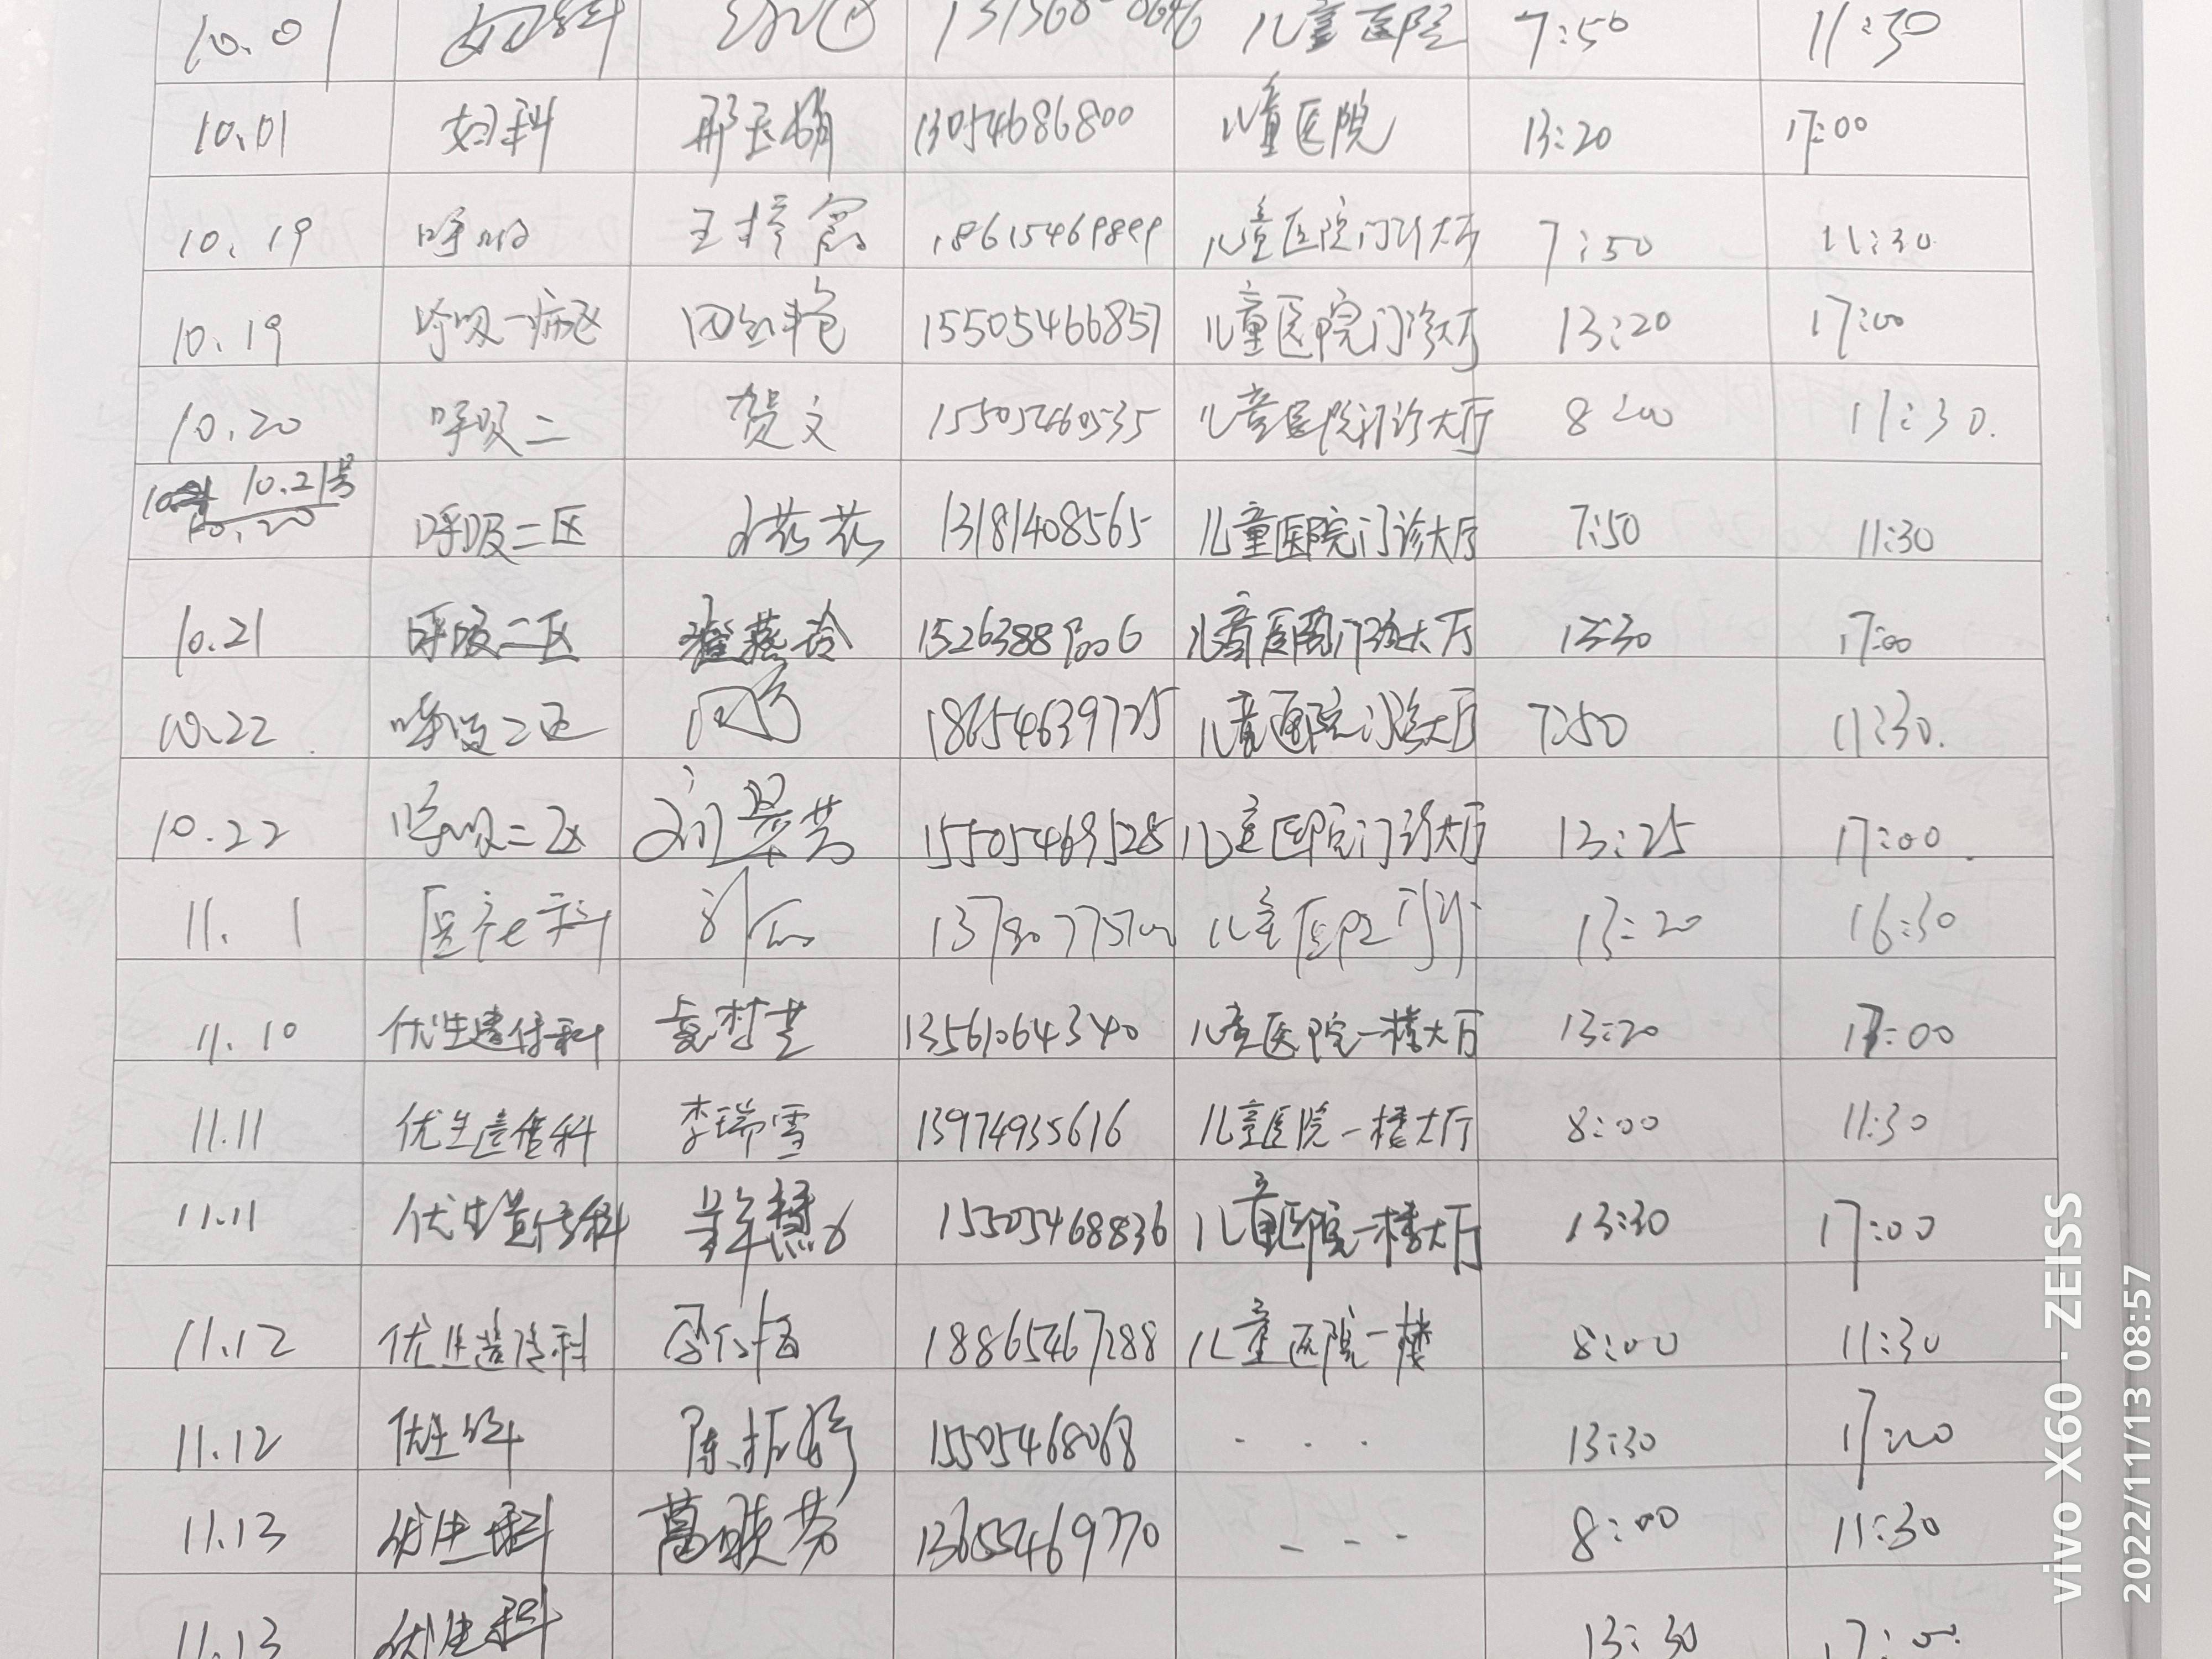 10.01 妇科 儿童医院 7:50 11:30
10.01 妇科 邢玉娟 13054686800 儿童医院 13:20 17:00
10.19 呼吸 王梓 18615469899 儿童医院门诊大厅 7:50 11:30
10.19 呼吸一病区 田红艳 15505466857 儿童医院门诊大厅 13:20 17:00
10.20 呼吸二 贺文 15505460535 儿童医院门诊大厅 8:00 11:30.
10.21号
10.20 呼吸二区 花花 13181408565 儿童医院门诊大厅 7:50 11:30
10.21 呼吸二区 燕玲 15263889006 儿童医院门诊大厅 13:30 17:00
10.22 呼吸二区 18654639725 儿童医院门诊大厅 7:50 11:30.
10.22 呼吸二区 刘景芳 15505469528 儿童医院门诊大厅 13:25 17:00.
11.1 科 儿童医院门诊 13:20 16:30
11.10 优生遗传科 袁梦芝 13561064340 儿童医院一楼大厅 13:20 17:00
11.11 优生遗传科 李瑞雪 13974935616 儿童医院一楼大厅 8:00 11:30
11.11 优生遗传科 15505468836 儿童医院一楼大厅 13:30 17:00
11.12 优生遗传科 18865467288 儿童医院一楼 8:00 11:30
11.12 优生科 陈振婷 15505468068 · · · 13:30 17:00
11.13 优生科 葛联芬 13655469770 - - - 8:00 11:30
11.13 优生科 13:30 17:00
vivo X60 · ZEISS
2022/11/13 08:57